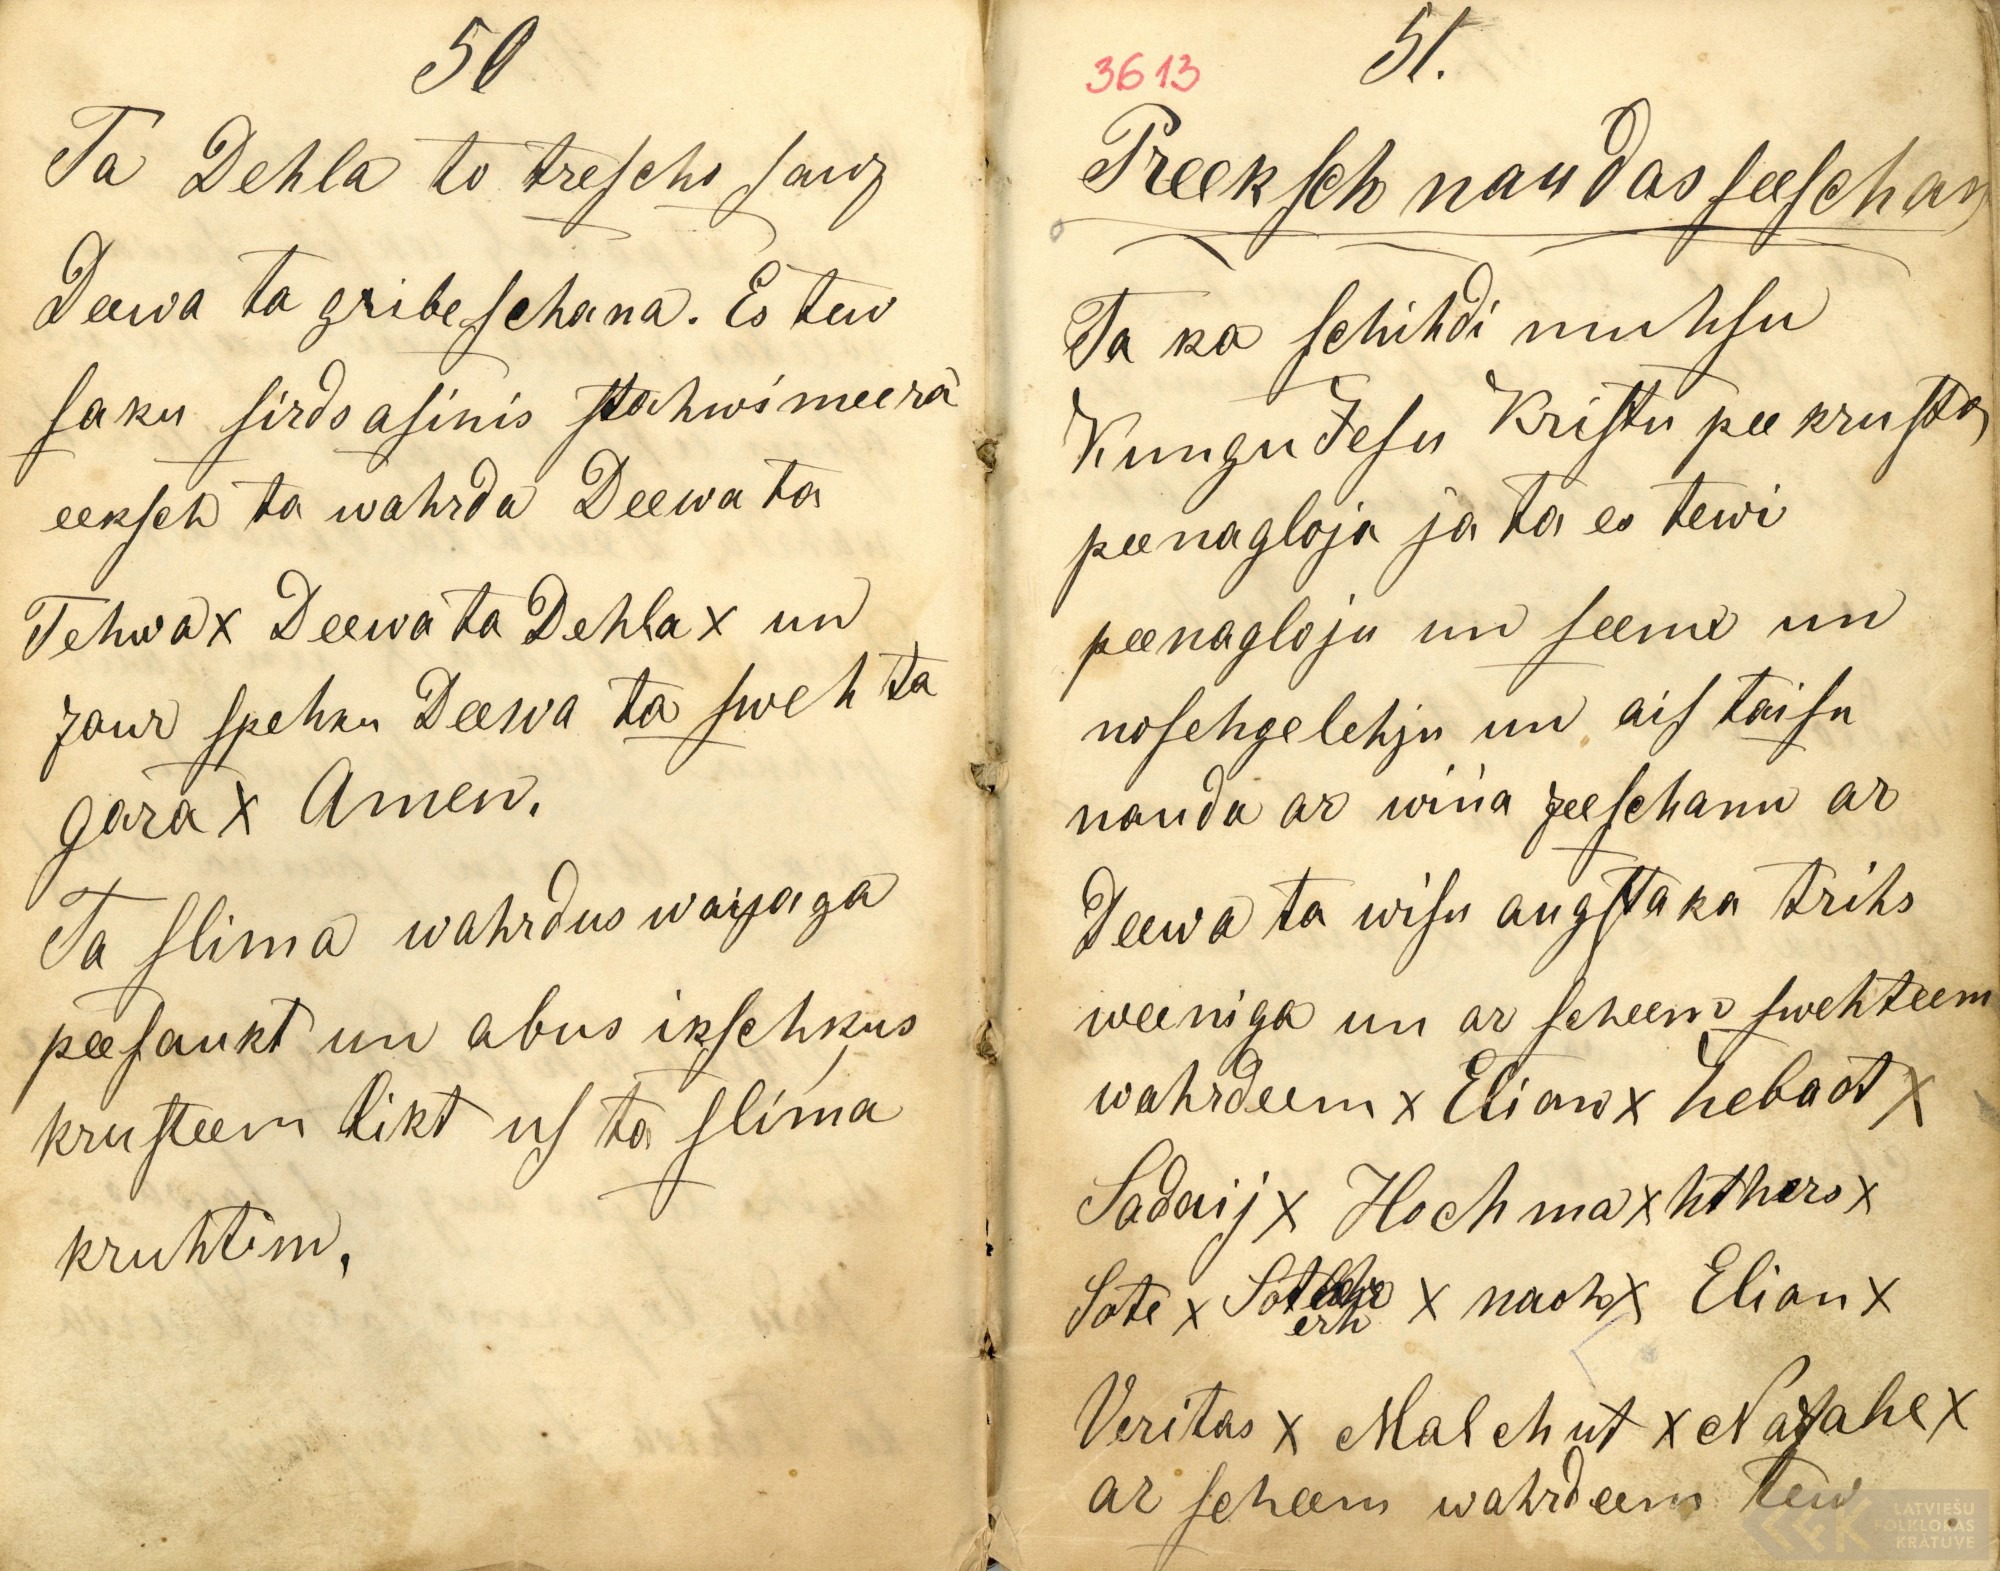 50
Ta Dehla to trescho sauz
Deewa ta gribeschana. Es tew
saku sirds asinis stahwi meerà
eeksch ta wahrda Deewa ta
Tehwa x Deewa ta Dehla x un
zaur spehku Deewa ta swehta
gara x Amen.
Ta slima wahrdus waijaga
peesaukt un abus ikschkus
krusteem likt us ta slima
kruhtim.
51.
3613
Preeksch naudas seeschan
Ta ka schihdi muhsu
Kungu Jesu Kristu pee krusta
peenagloja ja ta es tewi
peenagloju un seenu un
nosehgelehju un aistaisu
nauda ar wiņa zeeschanu ar
Deewa ta wisu augstaka trihs
weeniga un ar scheem swehteem
wahrdeem x Elion x hebaot x
Sadaij x Hochma x hthers x
Sote x erh x naoh x Elion x
Veritas x Malchut x Natahe x
ar scheem wahrdeem tew
LATVIEŠU
FOLKLORAS
KRĀTUVE